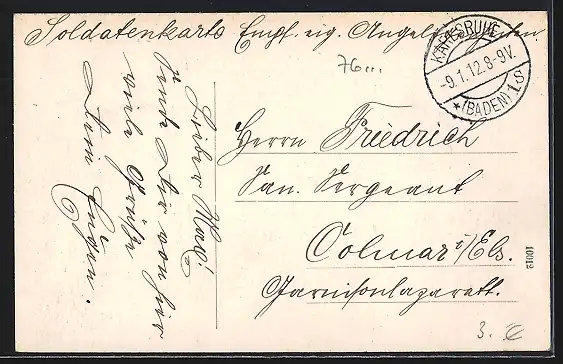 Soldatenkarte Empf. eig. Angelegenheiten
KARLSRUHE
-9.1.12.8-9V.
*(BADEN)1s
76...
Lieber Max!
Sende Dir von hier
viele Grüße
Dein Eugen.
Herrn Friedrich
San. Sergeant
Colmar i/Els.
Garnisonlazarett.
10012
3.